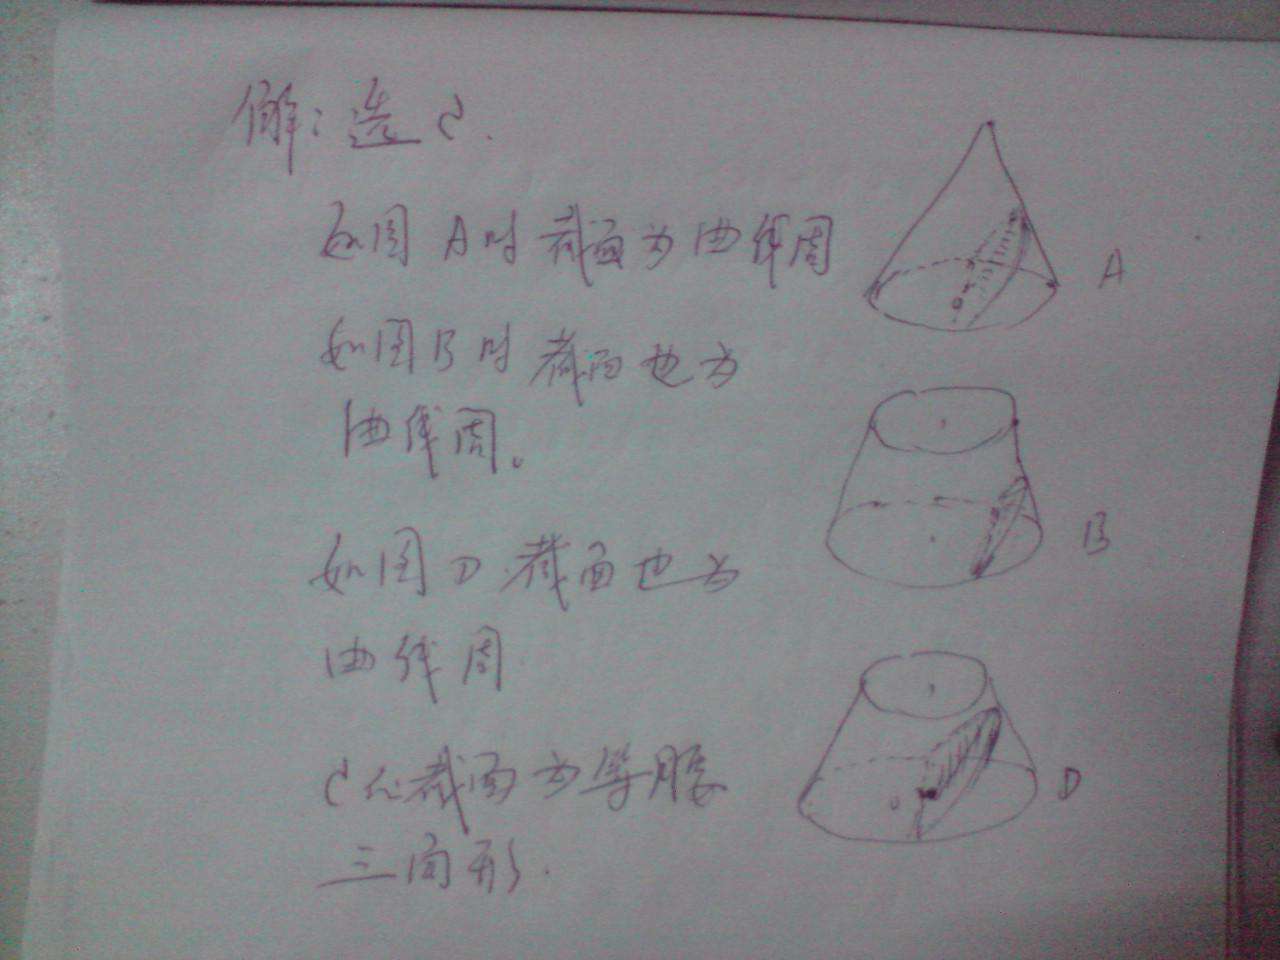 解:选C.
如图A时截面为曲线周
A
如图B时截面也为
曲线周。
B
如图D截面也为
曲线周
D
C之截面为等腰
三角形.